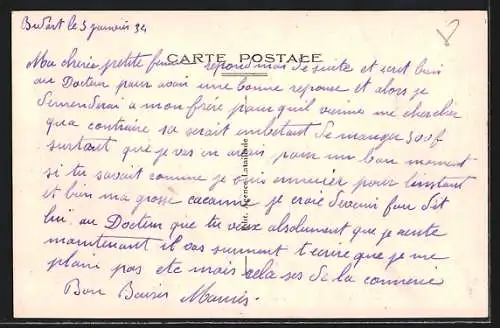 le 5 janvier 34
CARTE POSTALE
Ma chérie petite répond moi de suite et ecrit bien
au Docteur pour avoir une bonne reponse et alors je
demanderai a mon frère pour quil vienne me chercher
qua contraire sa serait embetant de manger 300f
surtout que je vais en avoir pour un bon moment
si tu savait comme je suis ennuiée pour l'instant
et bien ma grosse je croie devenir fou dit
lui au Docteur que tu veux absolument que je rente
maintenant il vas surment t'ecrire que je me
plain pas etc mais cela ses de la connerie
Bon Baiser Mamis.
Edit. Agence Lataillade